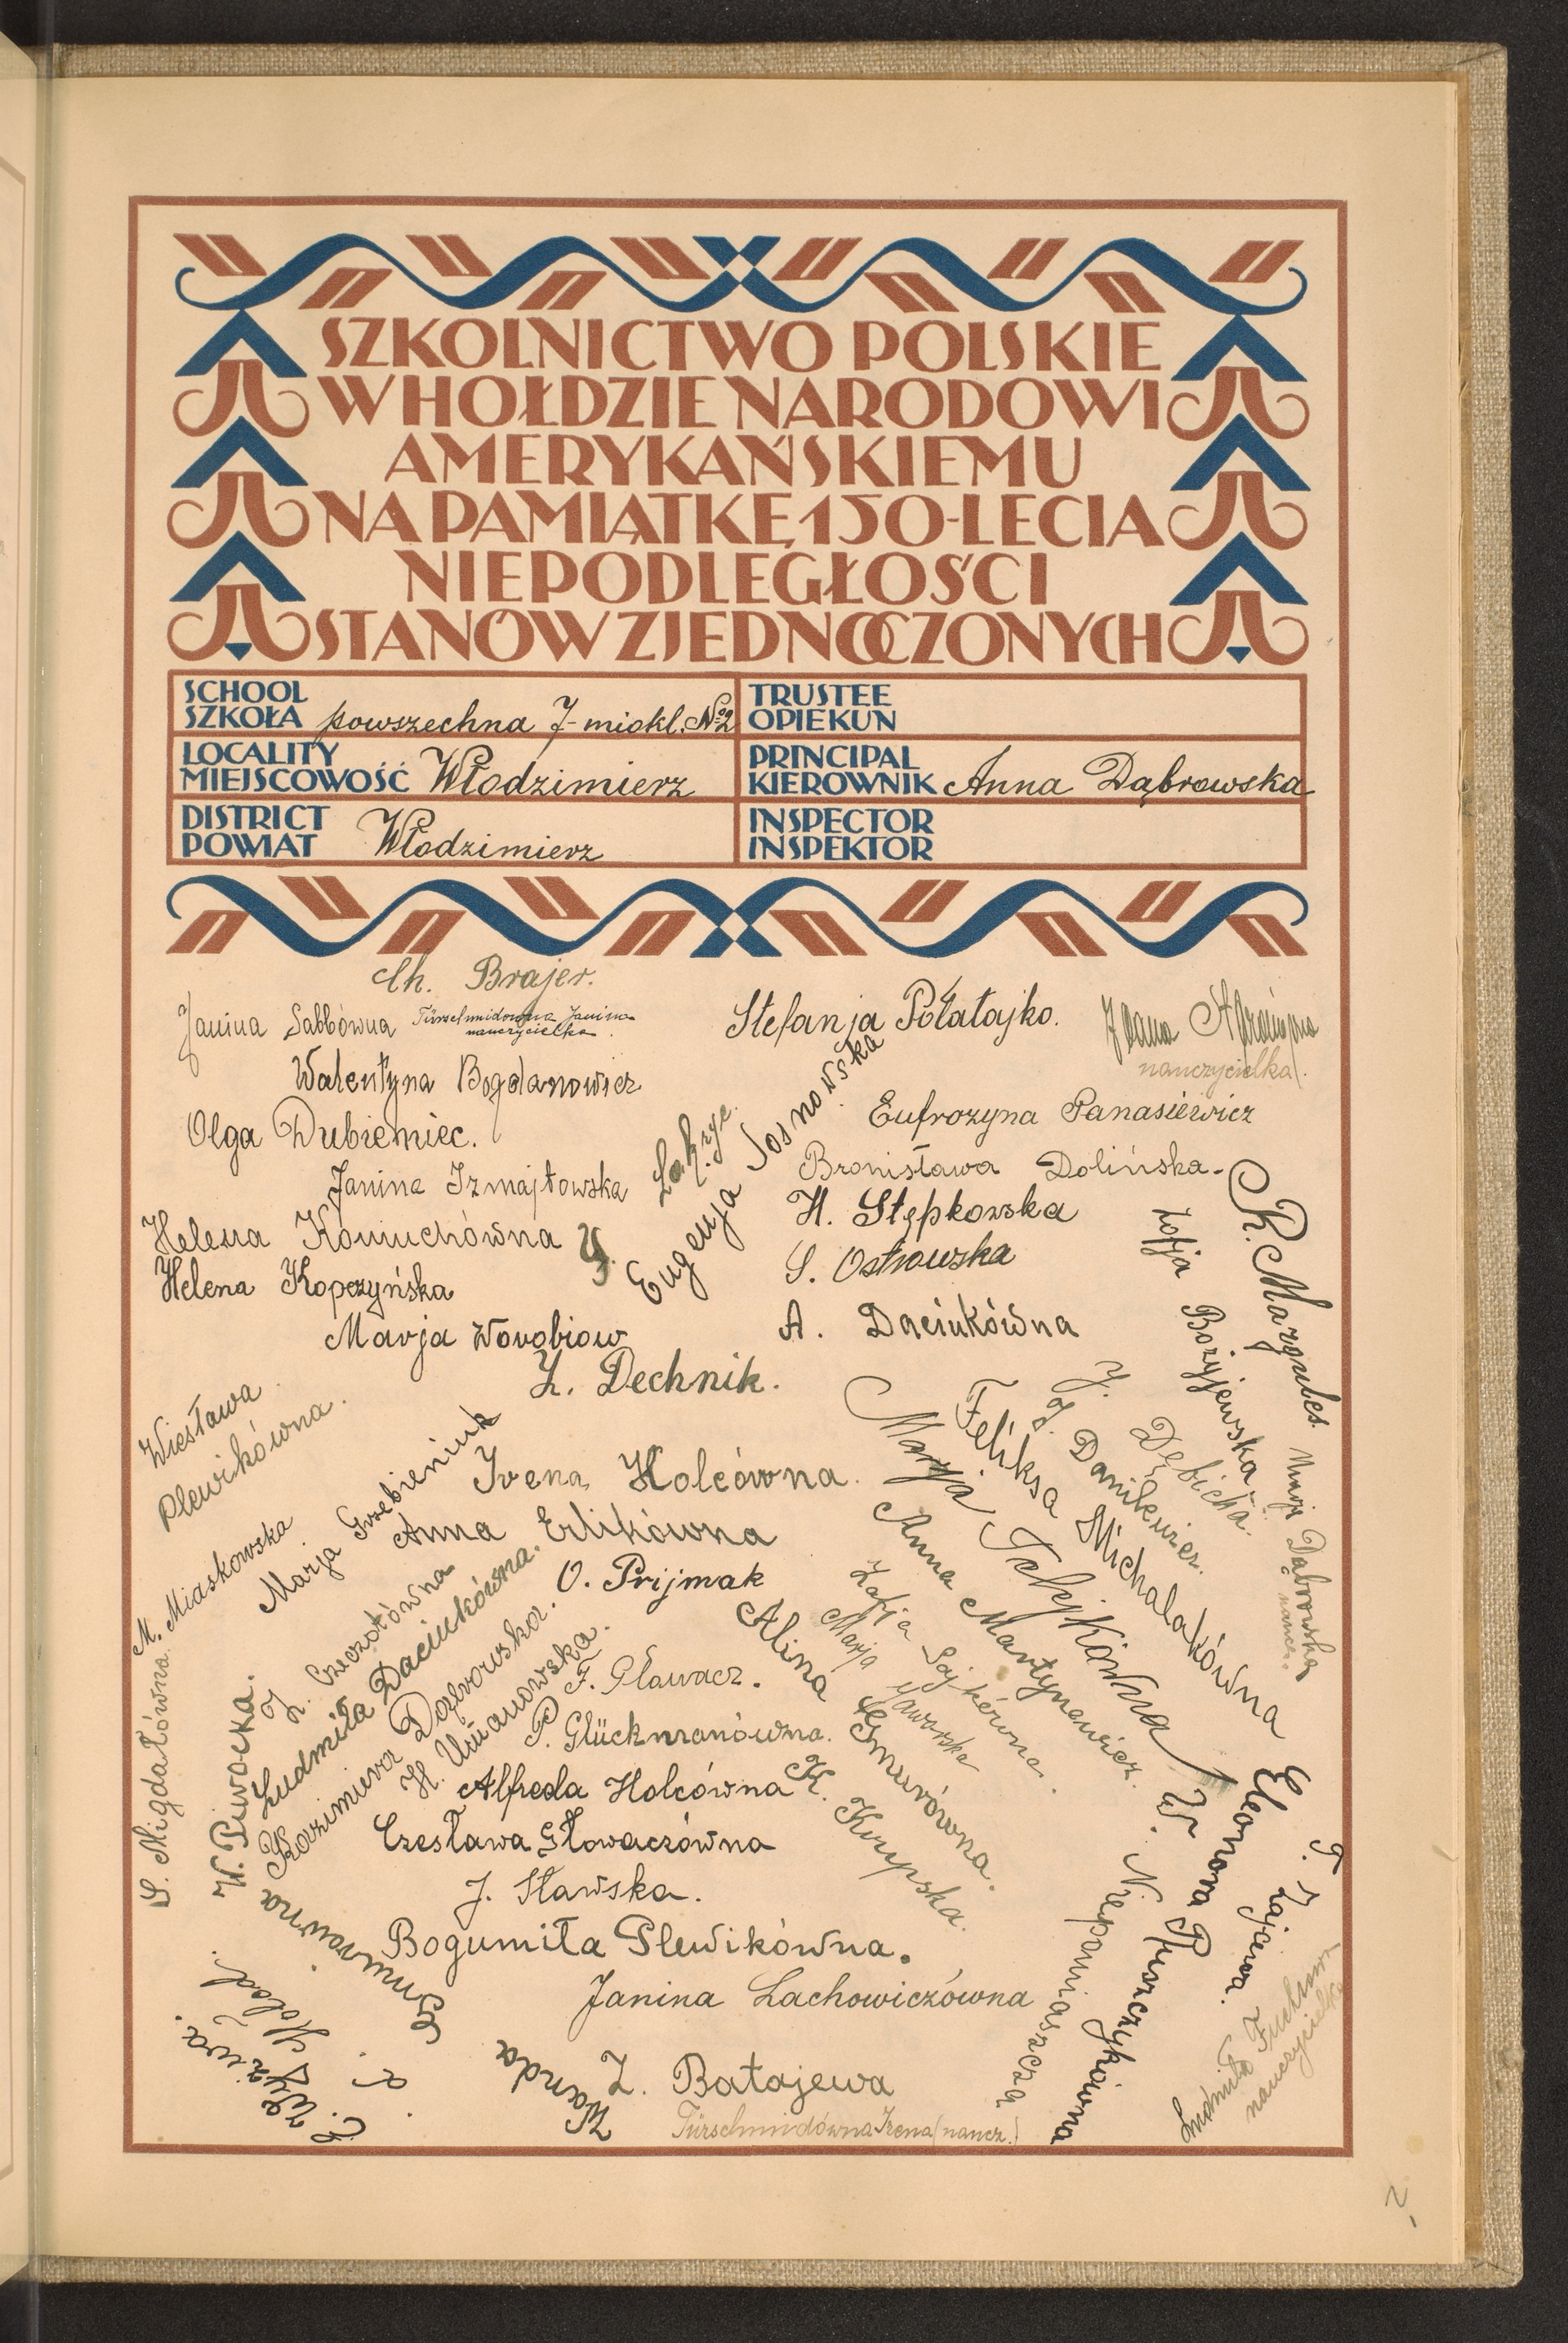 SZKOLNICTWO POLSKIE
W HOŁDZIE NARODOWI
AMERYKAŃSKIEMU
NA PAMIĄTKĘ 150-LECIA
NIEPODLEGŁOŚCI
STANÓW ZJEDNOCZONYCH
SCHOOL
SZKOŁA powszechna 7-miokl. № 2
TRUSTEE
OPIEKUN
LOCALITY
MIEJSCOWOŚĆ Włodzimierz
PRINCIPAL
KIEROWNIK Anna Dąbrowska
DISTRICT
POWIAT Włodzimierz
INSPECTOR
INSPEKTOR
Ch. Brajer.
Janina Sabbówna
Türschmidówna Janina
nauczycielka.
Stefanja Połatajko.
nauczycielka.
Walentyna Bogdanowicz
Olga Dubieniec.
Eufrozyna Panasiewicz
Janina Izmajłowska
Eugenja Sosnowska
Bronisława Dolińska.
Helena Koniuchówna
H. Stępkowska
Helena Kopczyńska
S. Ostrowska
Marja Worobiow
A. Daciukówna
Z. Dechnik.
R. Margules
Zofja Bożyjewska
J. Dębicka.
J. Danilewicz.
Feliksa Michalakówna
Marja Dąbrowska
naucz.
Wiesława
Plewikówna.
Marja Grzebieniuk
Irena Holcówna.
Anna Erlikówna
O. Prijmak
M. Miaskowska
S. Migdałówna.
W. Piwocka.
Z. Czeczotówna
Ludmiła Daciukówna.
Kazimiera Dąbrowska.
H. Umanowska.
F. Gławacz.
P. Glückmanówna.
Alfreda Holcówna
Czesława Głowaczówna
J. Sławska.
Bogumiła Plewikówna.
Janina Lachowiczówna
Alina Gmurówna.
K. Krupska.
Zofja Sajkówna.
Marja Jaworska
Anna Martynowicz.
W. Niepomiaszcza
Eleonora Pluszczykówna
T. Zajewa.
Wanda Gmurówna
Z. Batajewa
Türschmidówna Irena (naucz.)
nauczycielka
2